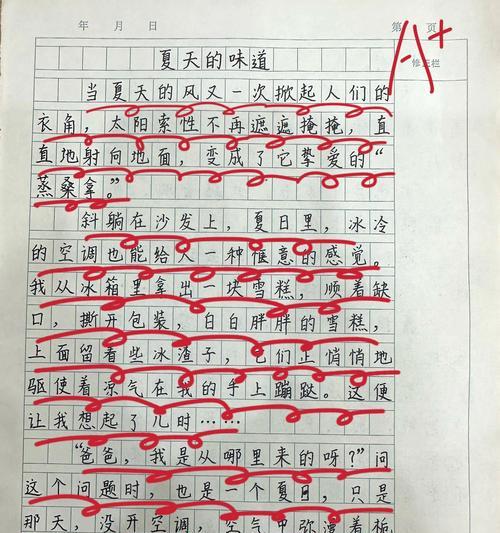 年 月 日
第 页
A+
修正栏
夏天的味道
当夏天的风又一次掀起人们的
衣角，太阳索性不再遮遮掩掩，直
直地射向地面，变成了它挚爱的“
蒸桑拿。”
斜躺在沙发上，夏日里，冰冷
的空调也能给人一种惬意的感觉。
我从冰箱里拿出一块雪糕，顺着缺
口，撕开包装，白白胖胖的雪糕，
上面留着些冰渣子，它们正悄悄地
驱使着凉气在我的手上蹦跶。这便
让我想起了儿时……
“爸爸，我是从哪里来的呀？”问
这个问题时，也是一个夏日，只是
那天，没开空调，空气中弥漫着栀